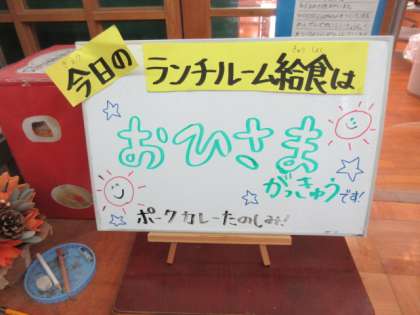 きょう
今日の
きゅうしょく
ランチルーム給食は
おひさま
がっきゅうです!
ポークカレーたのしみ!